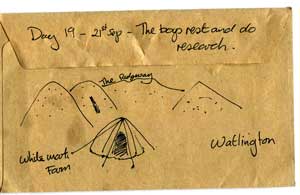 Day 19 - 21st Sep - The boys rest and do
research.
The Ridgeway
White mark
Farm
Watlington